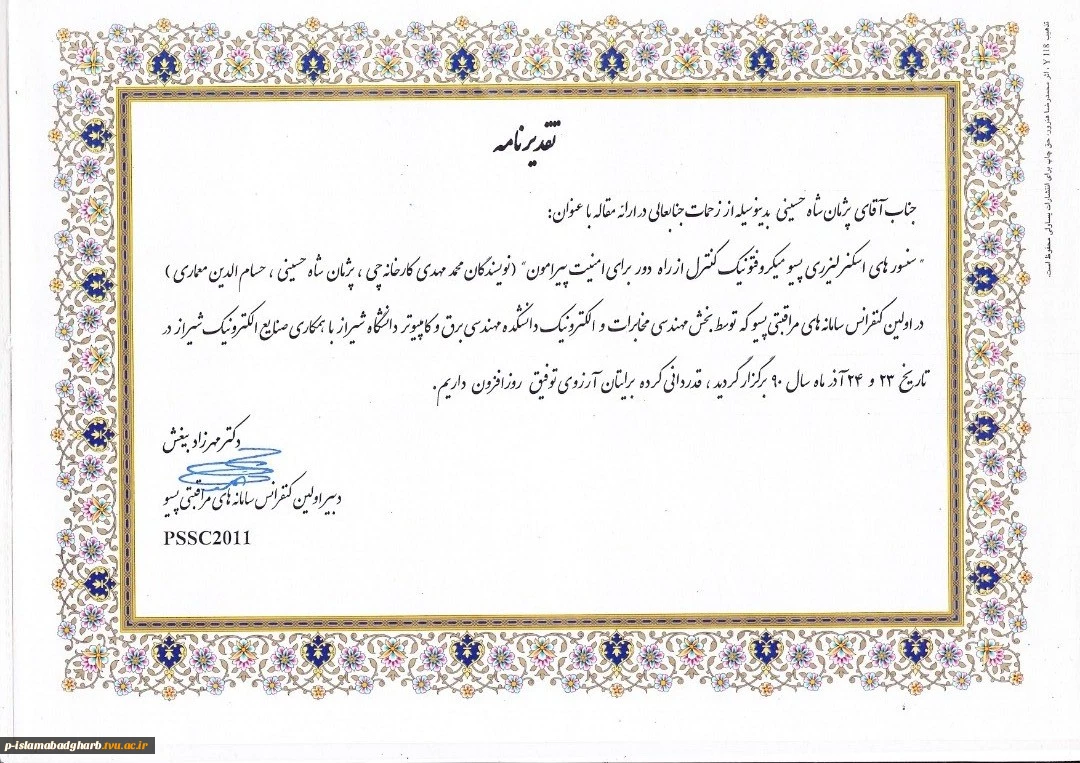 تقدیرنامه
جناب آقای پژمان شاه حسینی بدینوسیله از زحمات جنابعالی در ارائه مقاله با عنوان:
"سنسور های اسکنر لیزری پسیو میکروفتونیک کنترل از راه دور برای امنیت پیرامون" (نویسندگان محمد مهدی کارخانه چی ، پژمان شاه حسینی ، حسام الدین معماری )
در اولین کنفرانس سامانه های مراقبتی پسیو که توسط بخش مهندسی مخابرات و الکترونیک دانشکده مهندسی برق و کامپیوتر دانشگاه شیراز با همکاری صنایع الکترونیک شیراز در
تاریخ ۲۳ و ۲۴ آذر ماه سال ۹۰ برگزار گردید ، قدردانی کرده برایتان آرزوی توفیق روزافزون داریم.
دکتر مهرزاد بیغش
دبیر اولین کنفرانس سامانه های مراقبتی پسیو
PSSC2011
تذهیب Y 118 ، اثر محمدرضا هنرور، حق چاپ برای انتشارات یساولی محفوظ است.
p-islamabadgharb.tvu.ac.ir